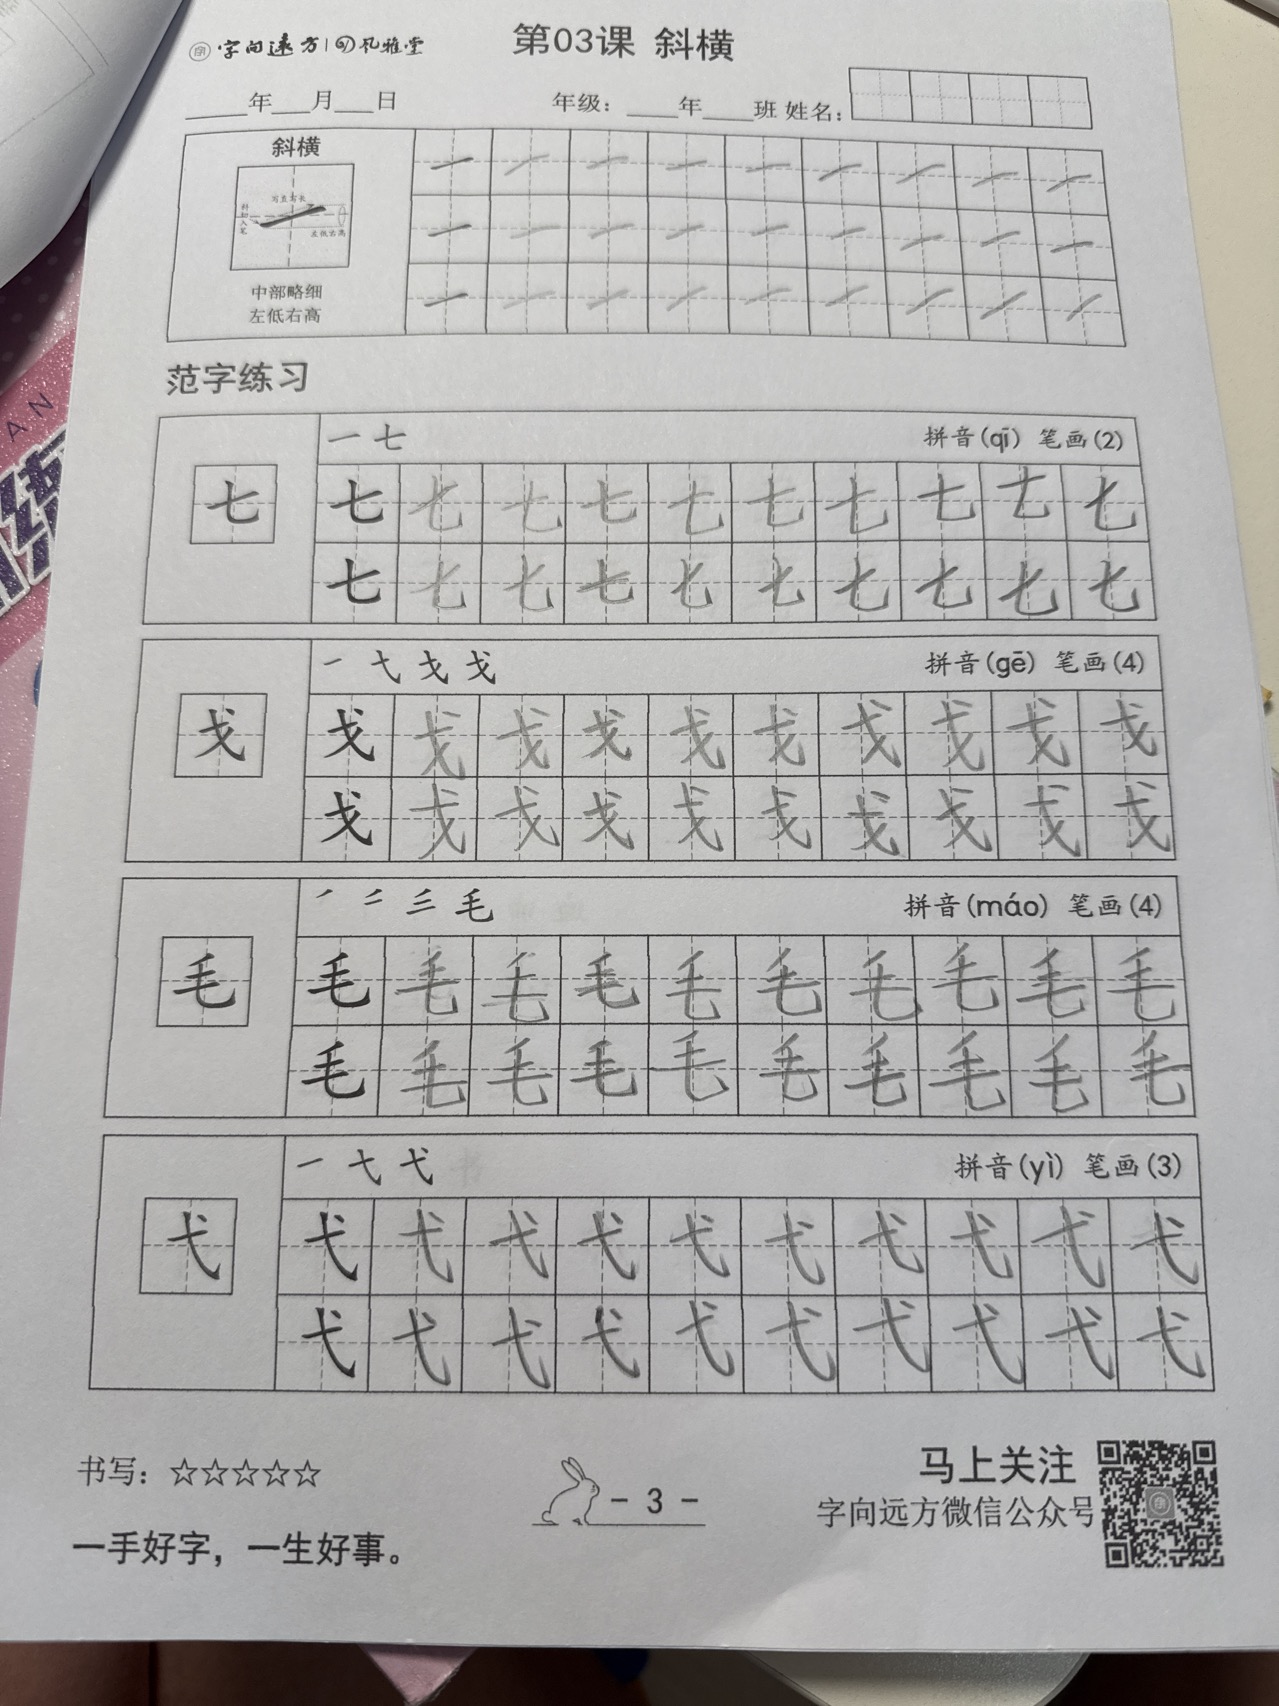 字向遠方 | 风雅堂
第03课 斜横
____年___月___日 年级：____年____班 姓名：
斜横
写直写长
斜切入笔
左低右高
中部略细
左低右高
一 一 一 一 一 一 一 一 一
一 一 一 一 一 一 一 一 一
一 一 一 一 一 一 一 一 一
范字练习
一 七 拼音(qī) 笔画(2)
七 七 七 七 七 七 七 七 七 七 七
七 七 七 七 七 七 七 七 七 七
一 弋 戈 戈 拼音(gē) 笔画(4)
戈 戈 戈 戈 戈 戈 戈 戈 戈 戈 戈
戈 戈 戈 戈 戈 戈 戈 戈 戈 戈
毛 拼音(máo) 笔画(4)
毛 毛 毛 毛 毛 毛 毛 毛 毛 毛 毛
毛 毛 毛 毛 毛 毛 毛 毛 毛 毛
一 弋 弋 拼音(yì) 笔画(3)
弋 弋 弋 弋 弋 弋 弋 弋 弋 弋 弋
弋 弋 弋 弋 弋 弋 弋 弋 弋 弋
书写：☆☆☆☆☆
- 3 -
马上关注
字向远方微信公众号
一手好字，一生好事。